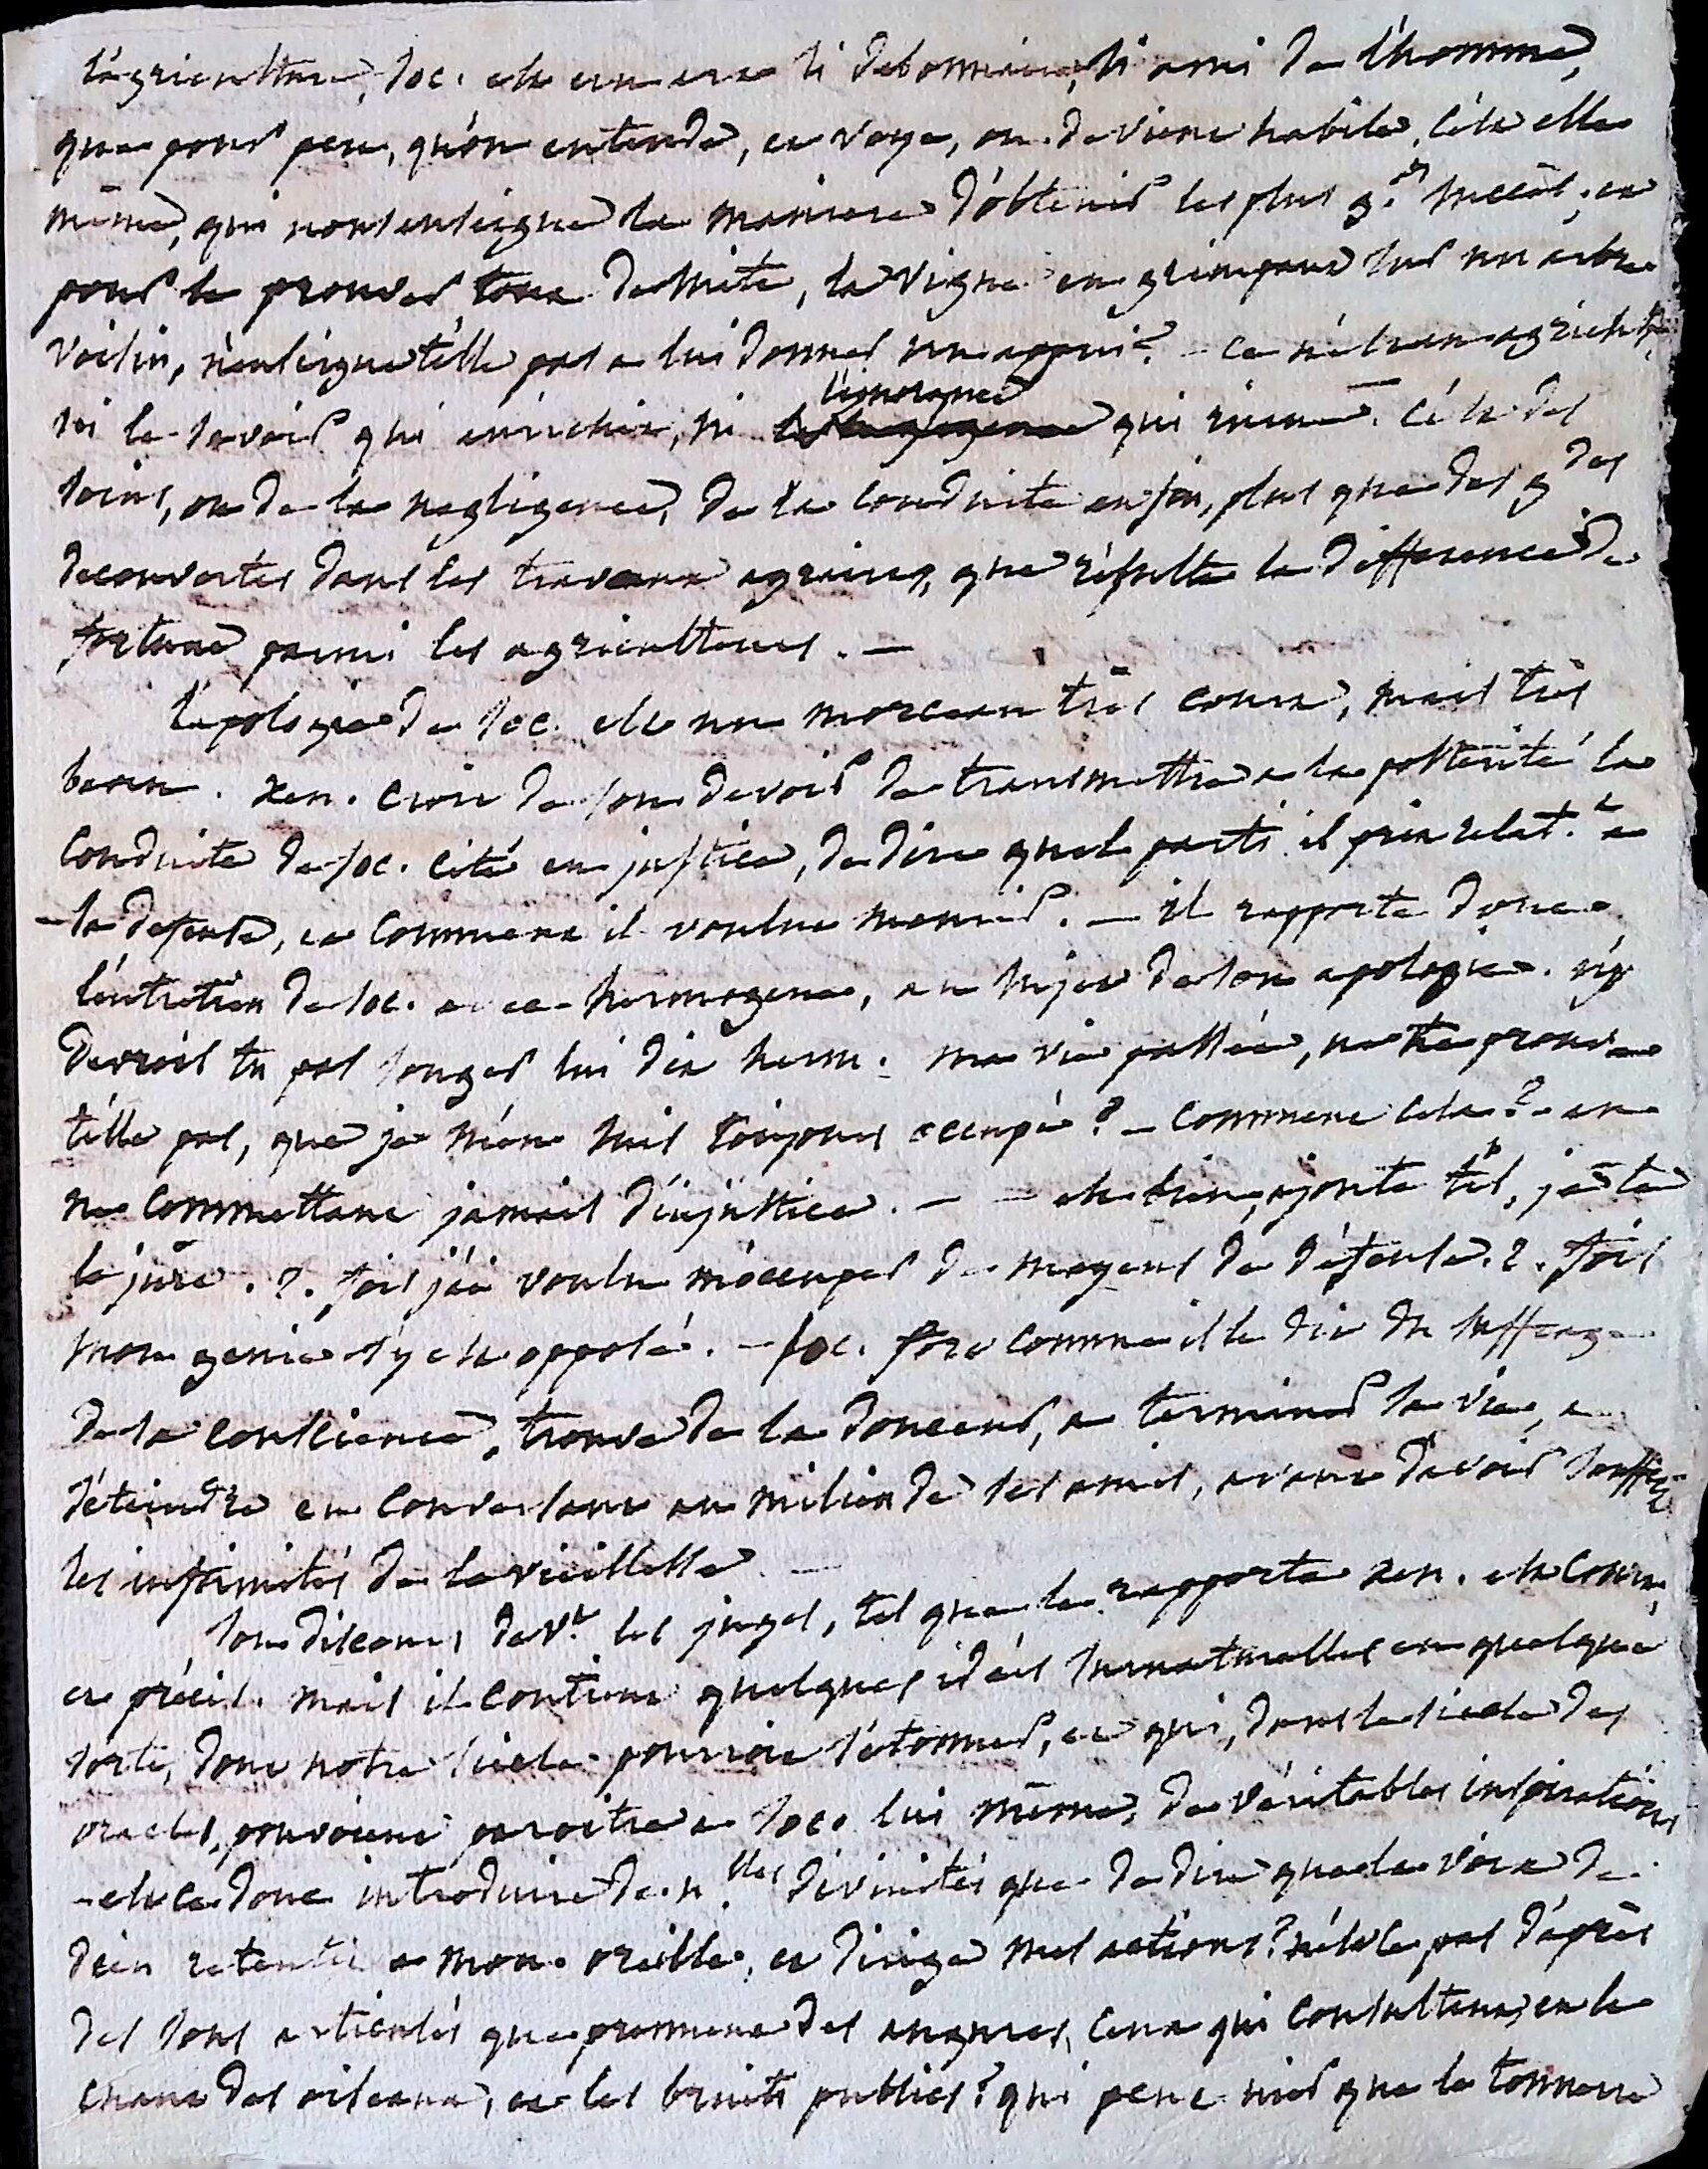 l'agriculture, soc. est un art si debonnaire, si ami de l'homme,
que pour peu, qu'on entende, et voye, on devient habile. c'est elle
même, qui nous enseigne la maniere d'obtenir les plus g.ds succès. et
pour le prouver tout de suite, la vigne en grimpant sur un arbre
voisin, n'enseigne t'elle pas a lui donner un appui? - ce n'est en agricult.re
ni le savoir qui enrichit, ni l'ignorance qui ruine. c'est des
soins, ou de la negligence, de la conduite enfin, plus que des g.des
decouvertes dans les travaux agraires, que résulte la difference de
fortune parmi les agriculteurs. -
l'apologie de soc. est un morceau très court, mais très
beau. xen. croit de son devoir de transmettre a la posterité la
conduite de soc. cité en justice, de dire quel parti il prit relat.t a
sa defense, et comment il voulut mourir. - il rapporte donc
l'entretien de soc. avec hermogene, au sujet de son apologie. n'y
devrois tu pas songer lui dit herm. ma vie passée, ne te prouve
t'elle pas, que je m'en suis toujours occupé? - comment cela? - en
ne commettant jamais d'injustice. - - eh bien, ajoute t'il, je te
le jure. 2. fois j'ai voulu m'occuper de moyens de défense. 2. fois
mon genie s'y est opposé. - soc. fort comme il le dit du suffrage
de sa conscience, trouve de la douceur, a terminer sa vie, a
s'éteindre en conversant au milieu de ses amis, avant d'avoir souffert
les infirmités de la vieillesse. -
son discours dev.t les juges, tel que le rapporte xen. est court,
et précis. mais il contient quelques idées surnaturelles en quelque
sorte, dont notre siecle pourroit s'étonner, et qui, dans le siecle des
oracles, pouvoient paroitre a soc. lui même, de véritables inspirations
- est ce donc introduire de n.lles divinités que de dire que la voix de
dieu retentit a mon oreille, et dirige mes actions? n'est ce pas d'après
des sons articulés que prennent des augures, ceux qui consultent, et le
chant des oiseaux, et les bruits publics? qui peut nier que le tonnerre